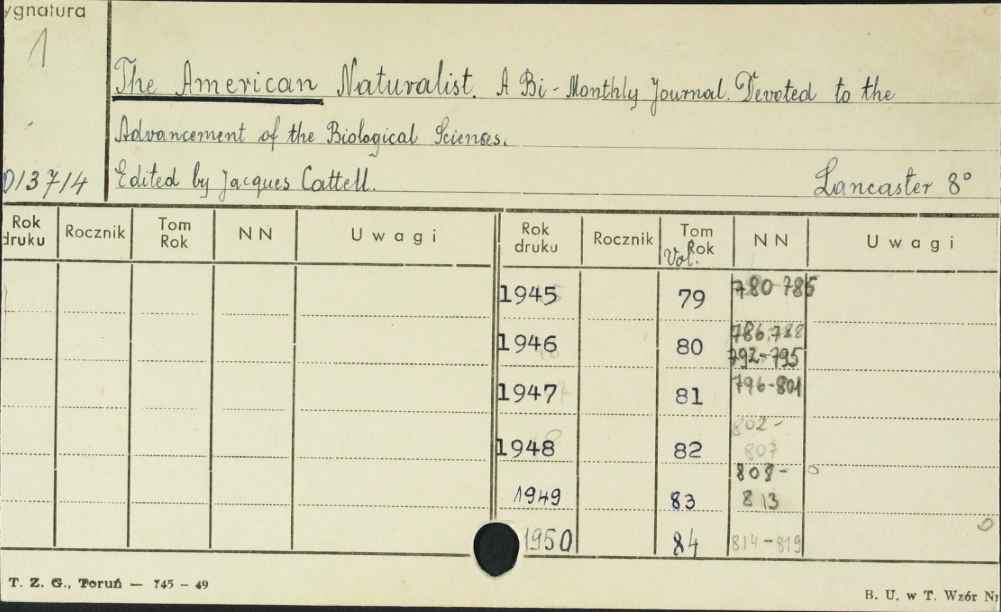 ygnatura
1
The American Naturalist. A Bi-Monthly Journal. Devoted to the
Advancement of the Biological Sciences.
013714 Edited by Jacques Cattell. Lancaster 8°
Rok druku Rocznik Tom Rok NN Uwagi Rok druku Rocznik Tom Rok Vol. NN Uwagi
1945 79 780-785
1946 80 786,788
792-795
1947 81 796-801
1948 82 802-
807
1949 83 808-
813
1950 84 814-819
T. Z. G., Toruń — 745 - 49
B. U. w T. Wzór Nr